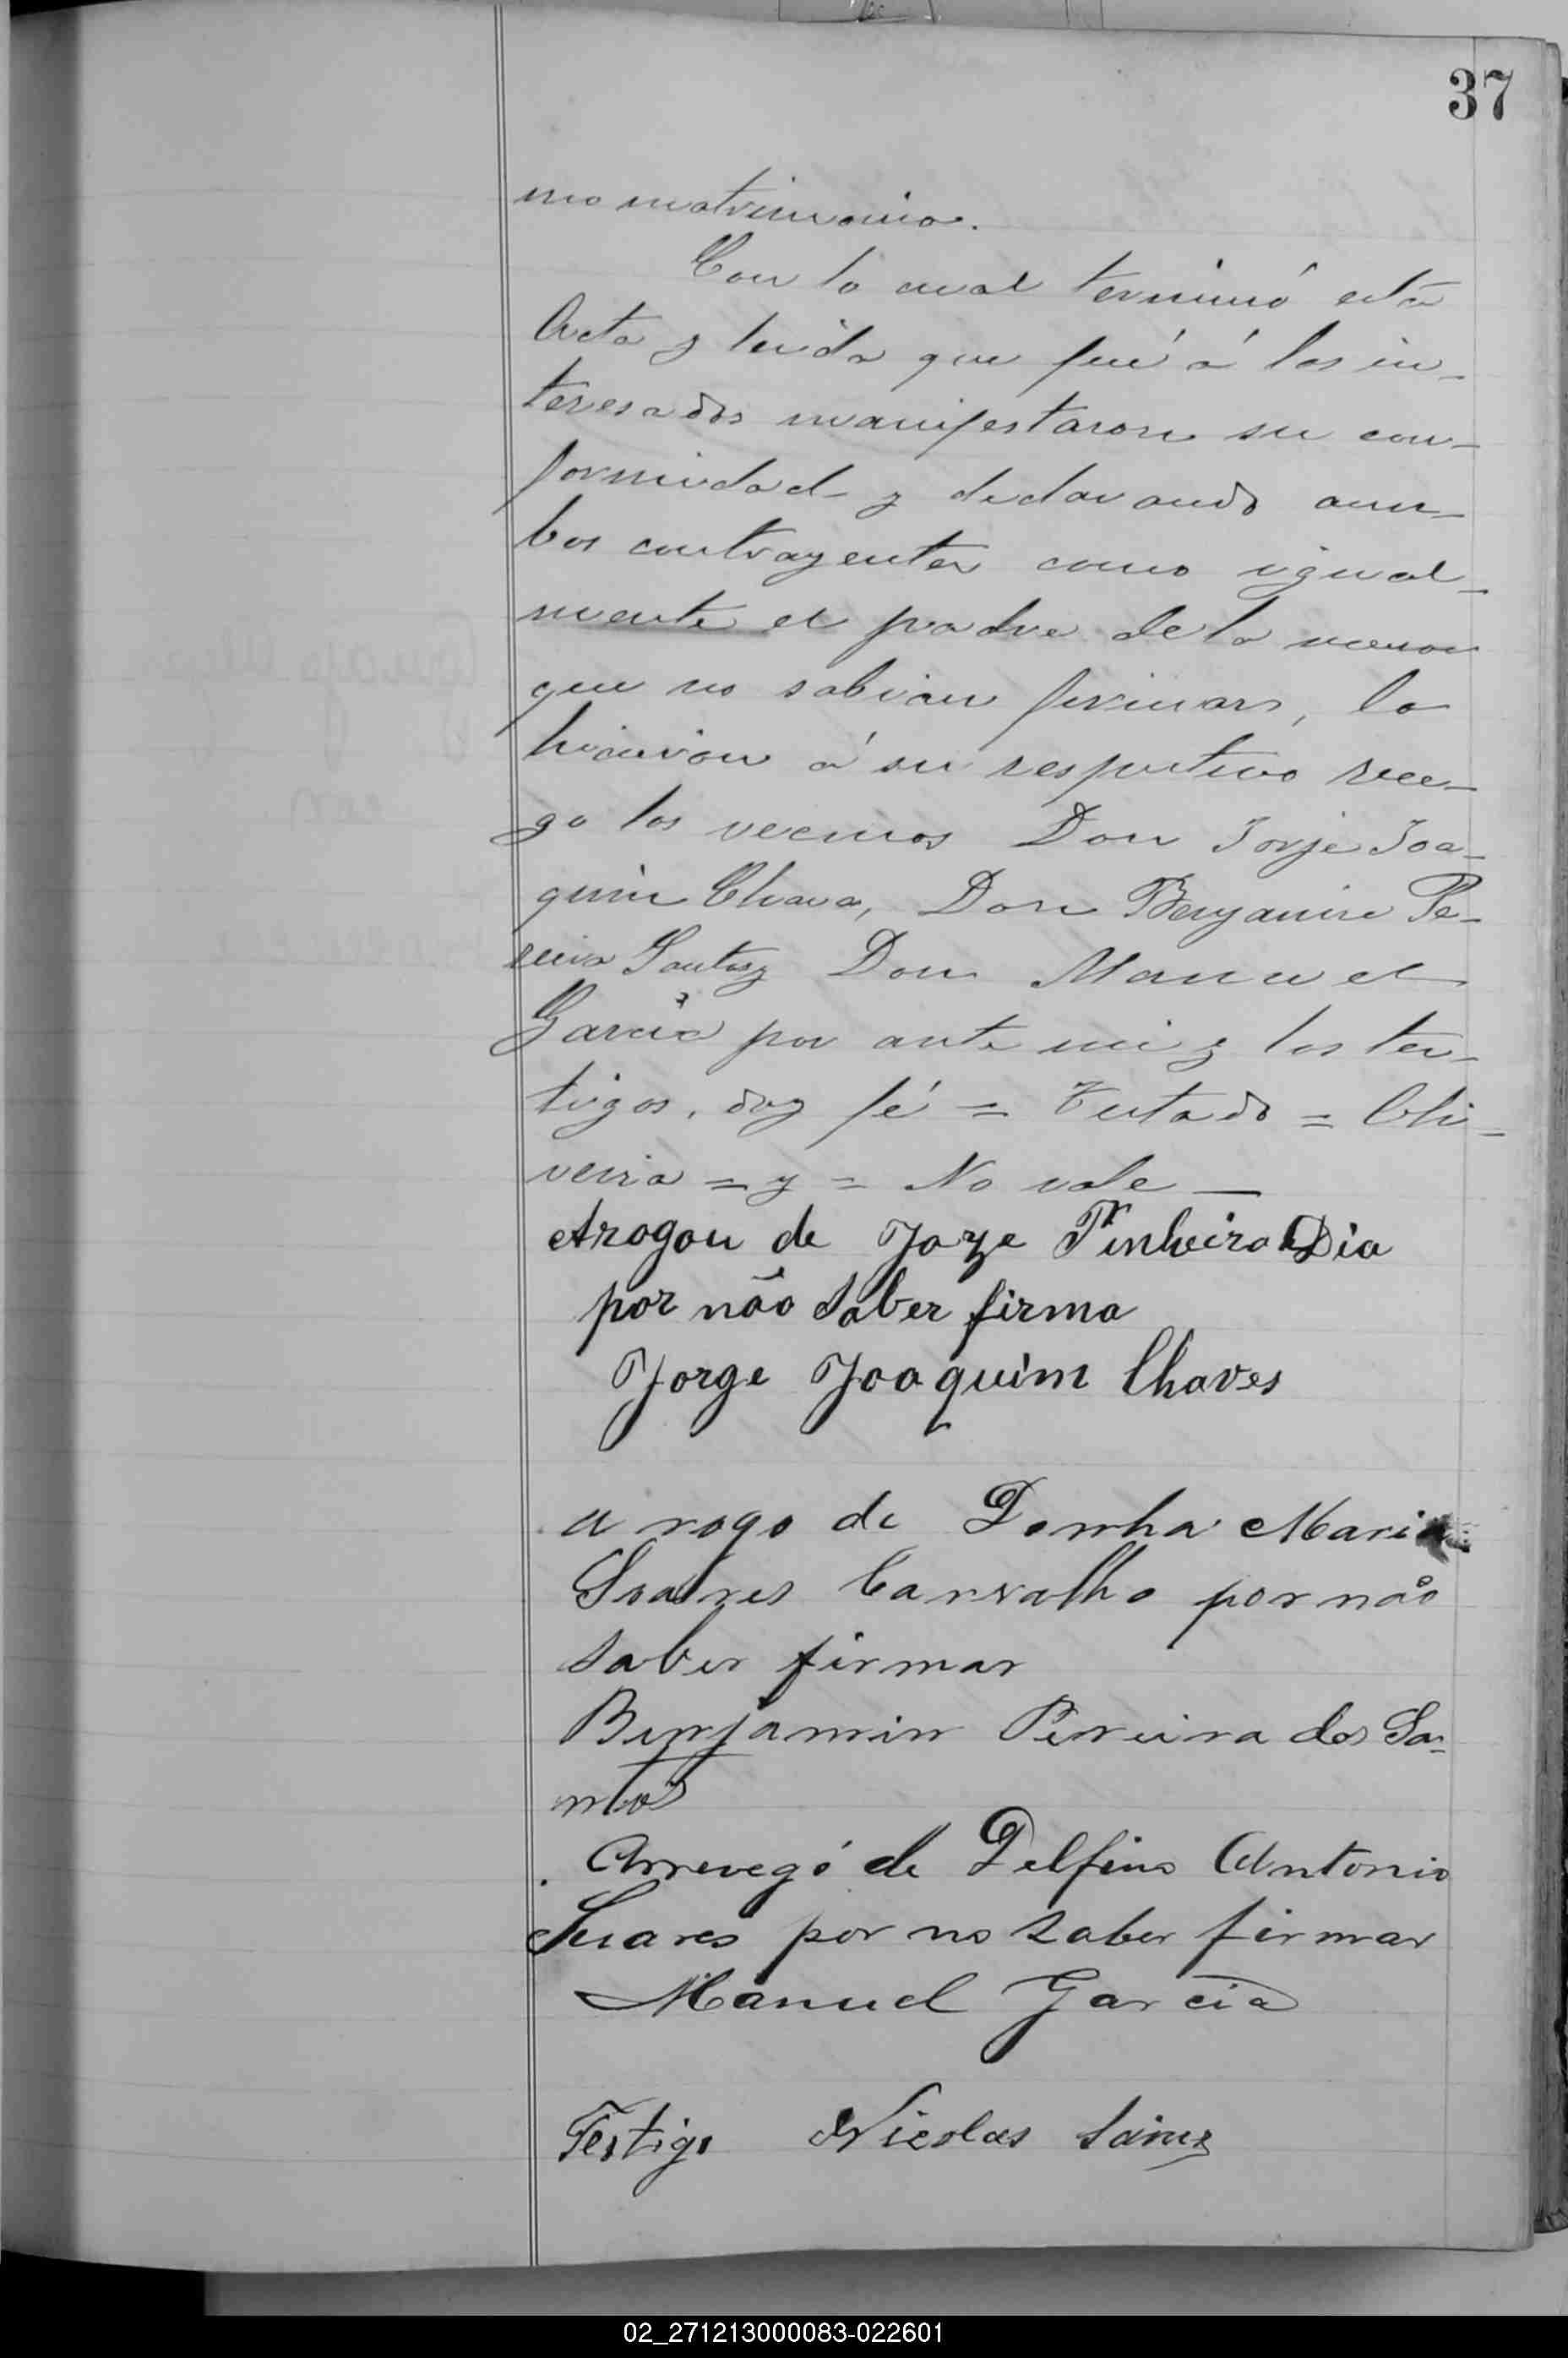 37
mo matrimonio.
Con lo cual terminó esta
Acta y leida que fué á los in-
teresados manifestaron su con-
formidad y declarando am-
bos contrayentes como igual-
mente el padre de la menor
que no sabian firmar, lo
hicieron á su respectivo rue-
go los vecinos Don Jorje Joa-
quin Chava, Don Benjamin Pe-
reira Santos y Don Manuel
Garcia por ante mi y los tes-
tigos, doy fé = Testado = Oli-
veira = y = No vale —
Arogou de Joze Pinheiro Dia
por não saber firma
Jorge Joaquim Chaves
a rogo de Donha Maria
Soares Carvalho por não
saber firmar
Benjamin Pereira dos Sa-
ntos
Arrevegó de Delfino Antonio
Suares por no saber firmar
Manuel Garcia
Testigo Nicolas Sainz
02_271213000083-022601